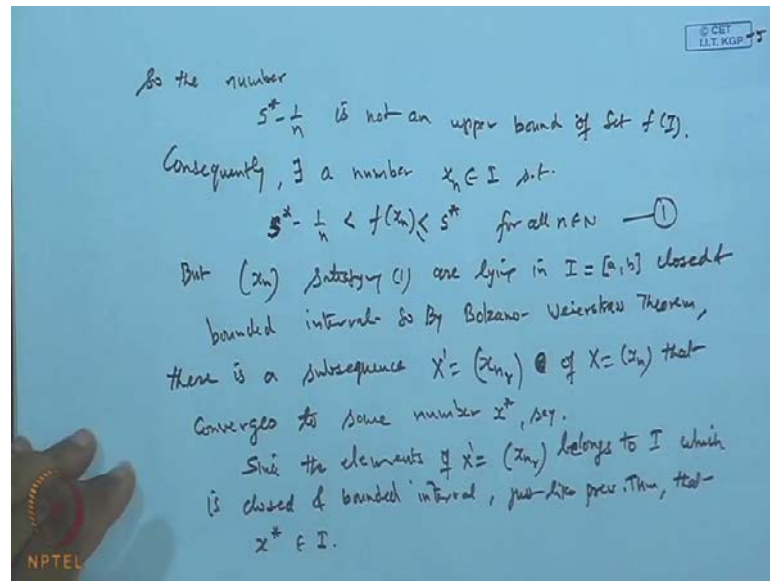 © CET
I.I.T. KGP
So the number
s* - 1/n is not an upper bound of Set f(I).
Consequently, ∃ a number xₙ ∈ I s.t.
s* - 1/n < f(xₙ) ≤ s* for all n ∈ N — ①
But (xₙ) satisfying (1) are lying in I = [a, b] closed &
bounded interval. So By Bolzano-Weierstrass Theorem,
there is a subsequence X' = (xₙᵣ) of X = (xₙ) that
converges to some number x*, say.
Since the elements of X' = (xₙᵣ) belongs to I which
is closed & bounded interval, just like prev. Thm, that
x* ∈ I.
NPTEL